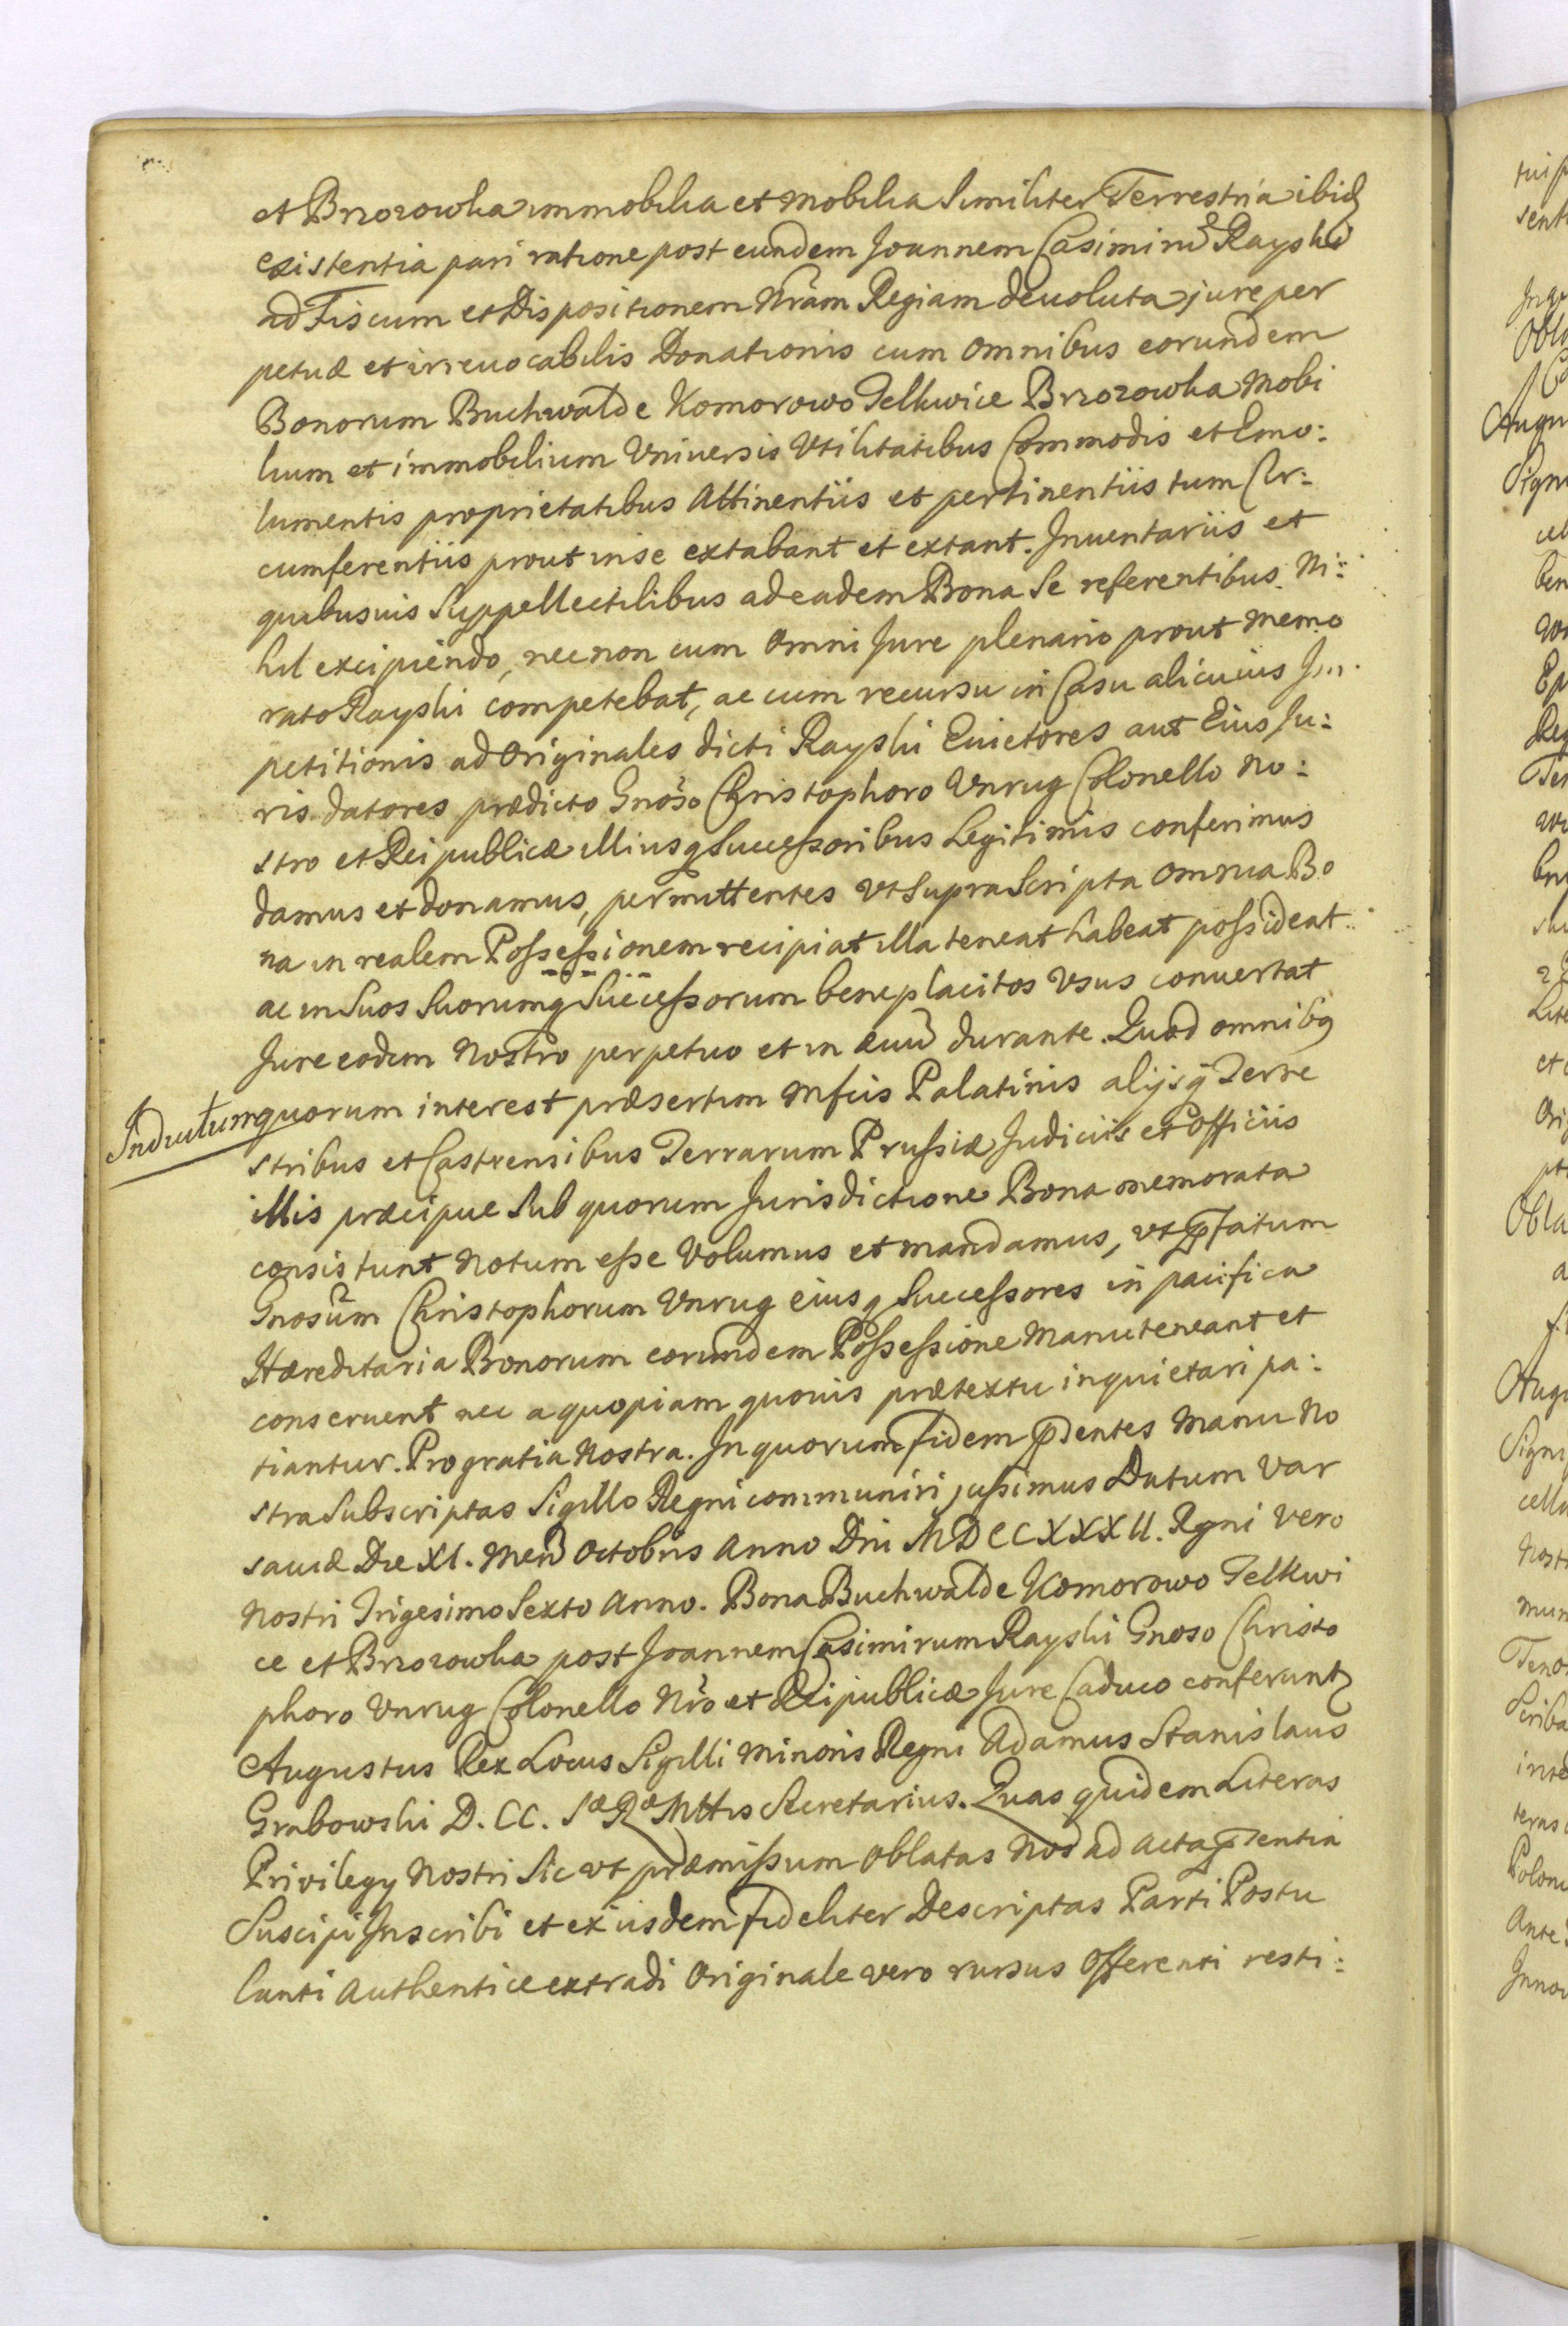 et Brzozowka immobilia et mobilia Similiter Terrestria ibid
existentia pari ratione post eundem Joannem Casimirũ Rayski
ad Fiscum et Dispositionem Nrãm Regiam devoluta jure per
petuæ et irrevocabilis Donationis cum omnibus eorundem
Bonorum Buchwalde Komorowo Telkwice Brzozowka Mobi
lium et immobilium Universis Utilitatibus Commodis et Emo:
lumentis proprietatibus Attinentiis et pertinentiis tum Cir:
cumferentiis prout in se extabant et extant. Inventariis et
quibusvis Suppellectilibus ad eadem Bona Se referentibus. Ni:
hil excipiendo, nec non cum Omni Jure plenario prout memo
rato Rayski competebat, ac cum recursu in Casu alicuius Im
petitionis ad Originales dicti Rayski Evictores aut Eius Ju:
ris datores prædicto Gnõso Christophoro Unrug Colonello No:
stro et Reipublicæ illiusq Successoribus Legitimis conferimus
damus et donamus, permittentes ut Supra Scripta omnia Bo
na in realem Possessionem recipiat illa teneat habeat possideat
ac in Suos Suorumq Successorum beneplacitos Usus convertat
Jure eodem Nostro perpetuo et in ævũ durante. Quod omnibq
Inductum quorum interest præsertim Mfcis Palatinis alijsq̃ Terre
stribus et Castrensibus Terrarum Prussiæ Judiciis et Officiis
illis præcipue Sub quorum Jurisdictione Bona memorata
consistunt Notum esse Volumus et mandamus, ut p̃fatum
Gnosũm Christophorum Unrug eiusq Successores in pacifica
Hæreditaria Bonorum eorundem Possessione Manuteneant et
conservent nec a quopiam quovis prætextu inquietari pa:
tiantur. Pro gratia Nostra. In quorum fidem p̃dentes Manu No
stra Subscriptas Sigillo Regni communiri jussimus Datum Var
saviæ Die XI. Men̄ Octobris Anno Dni MDCCXXXII. Rgni Vero
Nostri Trigesimo Sexto Anno. Bona Buchwalde Komorowo Telkwi
ce et Brzozowka post Joannem Casimirum Rayski Gnoso Christo
phoro Unrug Colonello Nrõ et Reipublicæ Jure Caduco conferunt
Augustus Rex Locus Sigilli Minoris Regni Adamus Stanislaus
Grabowski D. CC. Sæ Ræ Mttis Secretarius. Quas quidem Literas
Privilegy Nostri Sic ut præmissum Oblatas Nos ad Acta p̃sentia
Suscipi Inscribi et ex iisdem fideliter Descriptas Parti Postu
lanti Authentice extradi Originale vero rursus Offerenti resti: